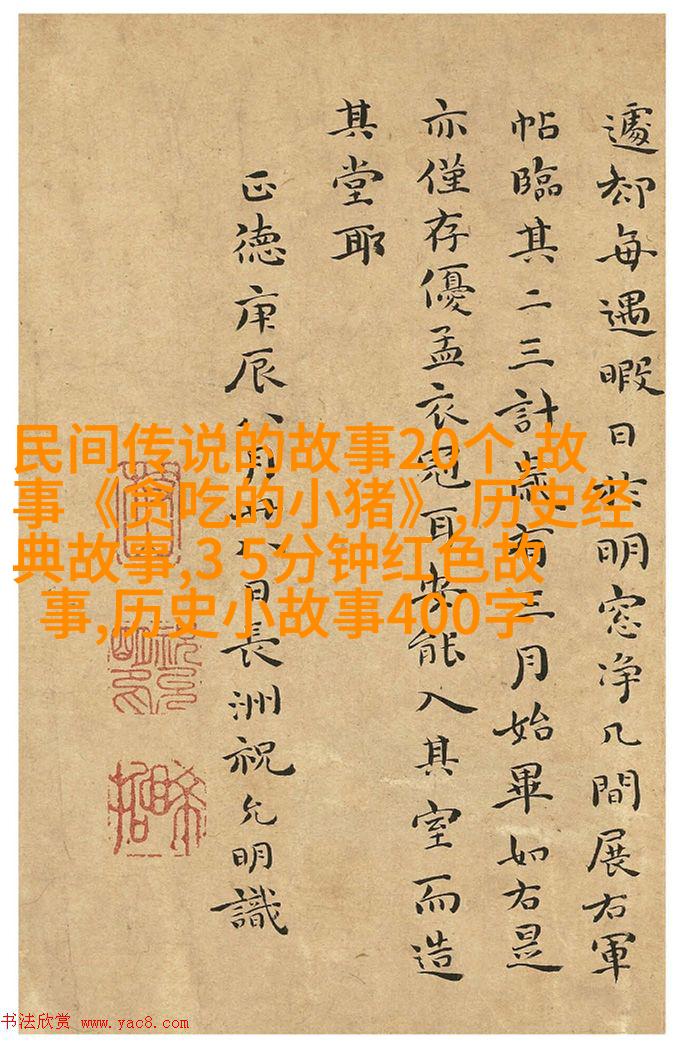 遽却每遇暇日於明窓净几間展右軍
帖臨其二三計歲有三月始畢如右是
亦僅存優孟衣冠耳安能入其室而造
其堂耶
正德庚辰八月廿八日長洲祝允明識
民间传说的故事20个,故
事《贪吃的小猪》,历史经
典故事,3 5分钟红色故
事,历史小故事400字
书法欣赏 www.yac8.com